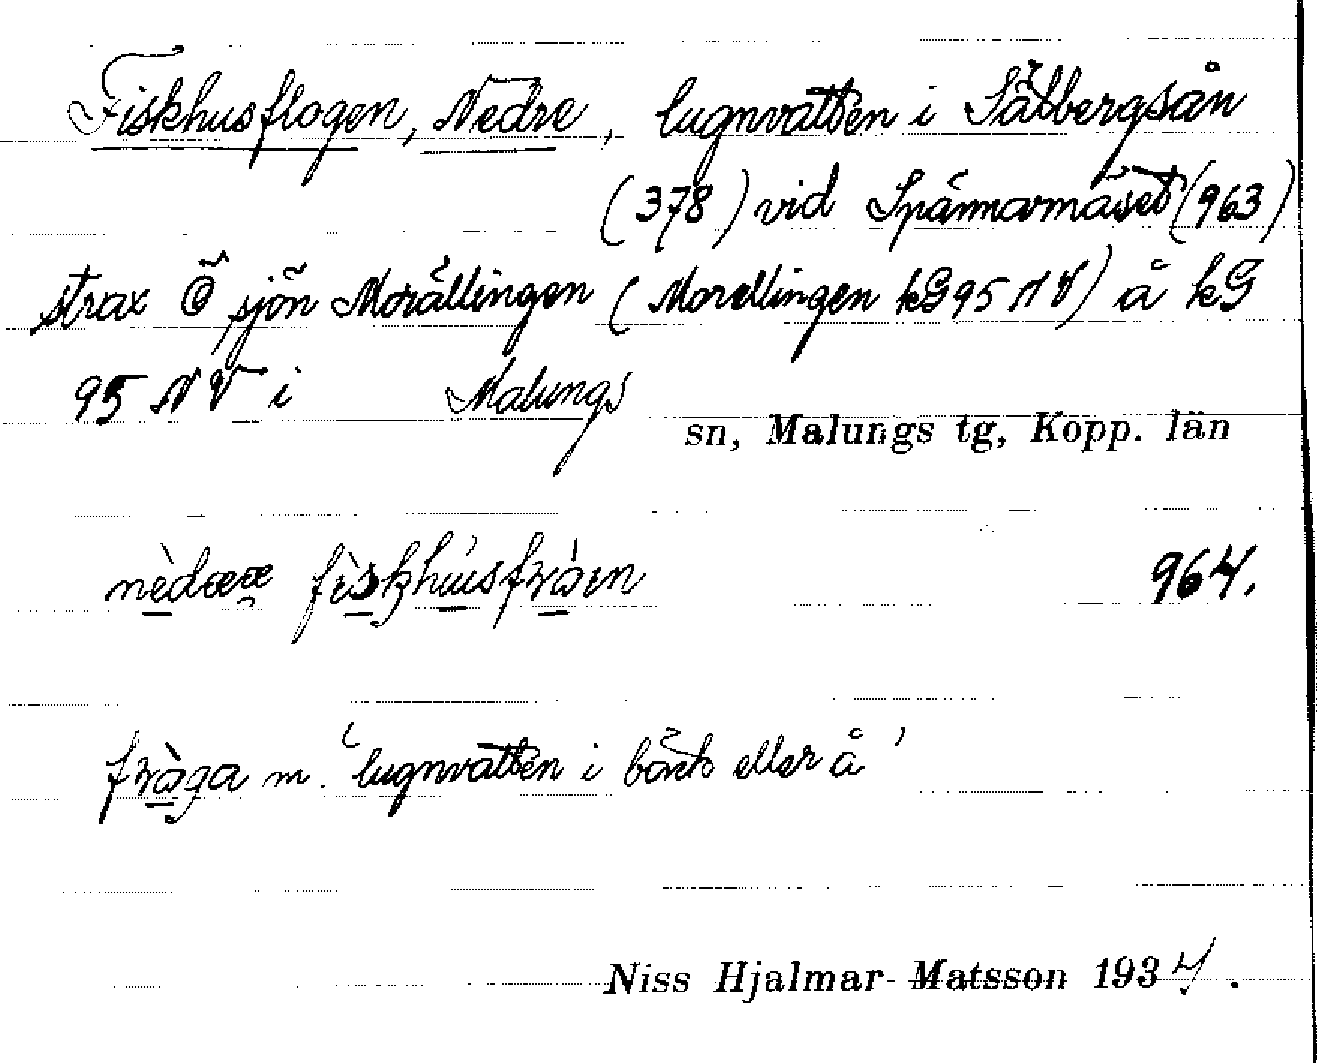 Fiskhusflogen, Nedre, lugnvatten i Sälbergsån
(378) vid Spännarmåset (963)
strax Ö sjön Morällingen (Morellingen kG 95 NV) å kG
95 NV i Malungs
sn, Malungs tg, Kopp. län
964.
m. 'lugnvatten i bäck eller å'
Niss Hjalmar Matsson 1934.